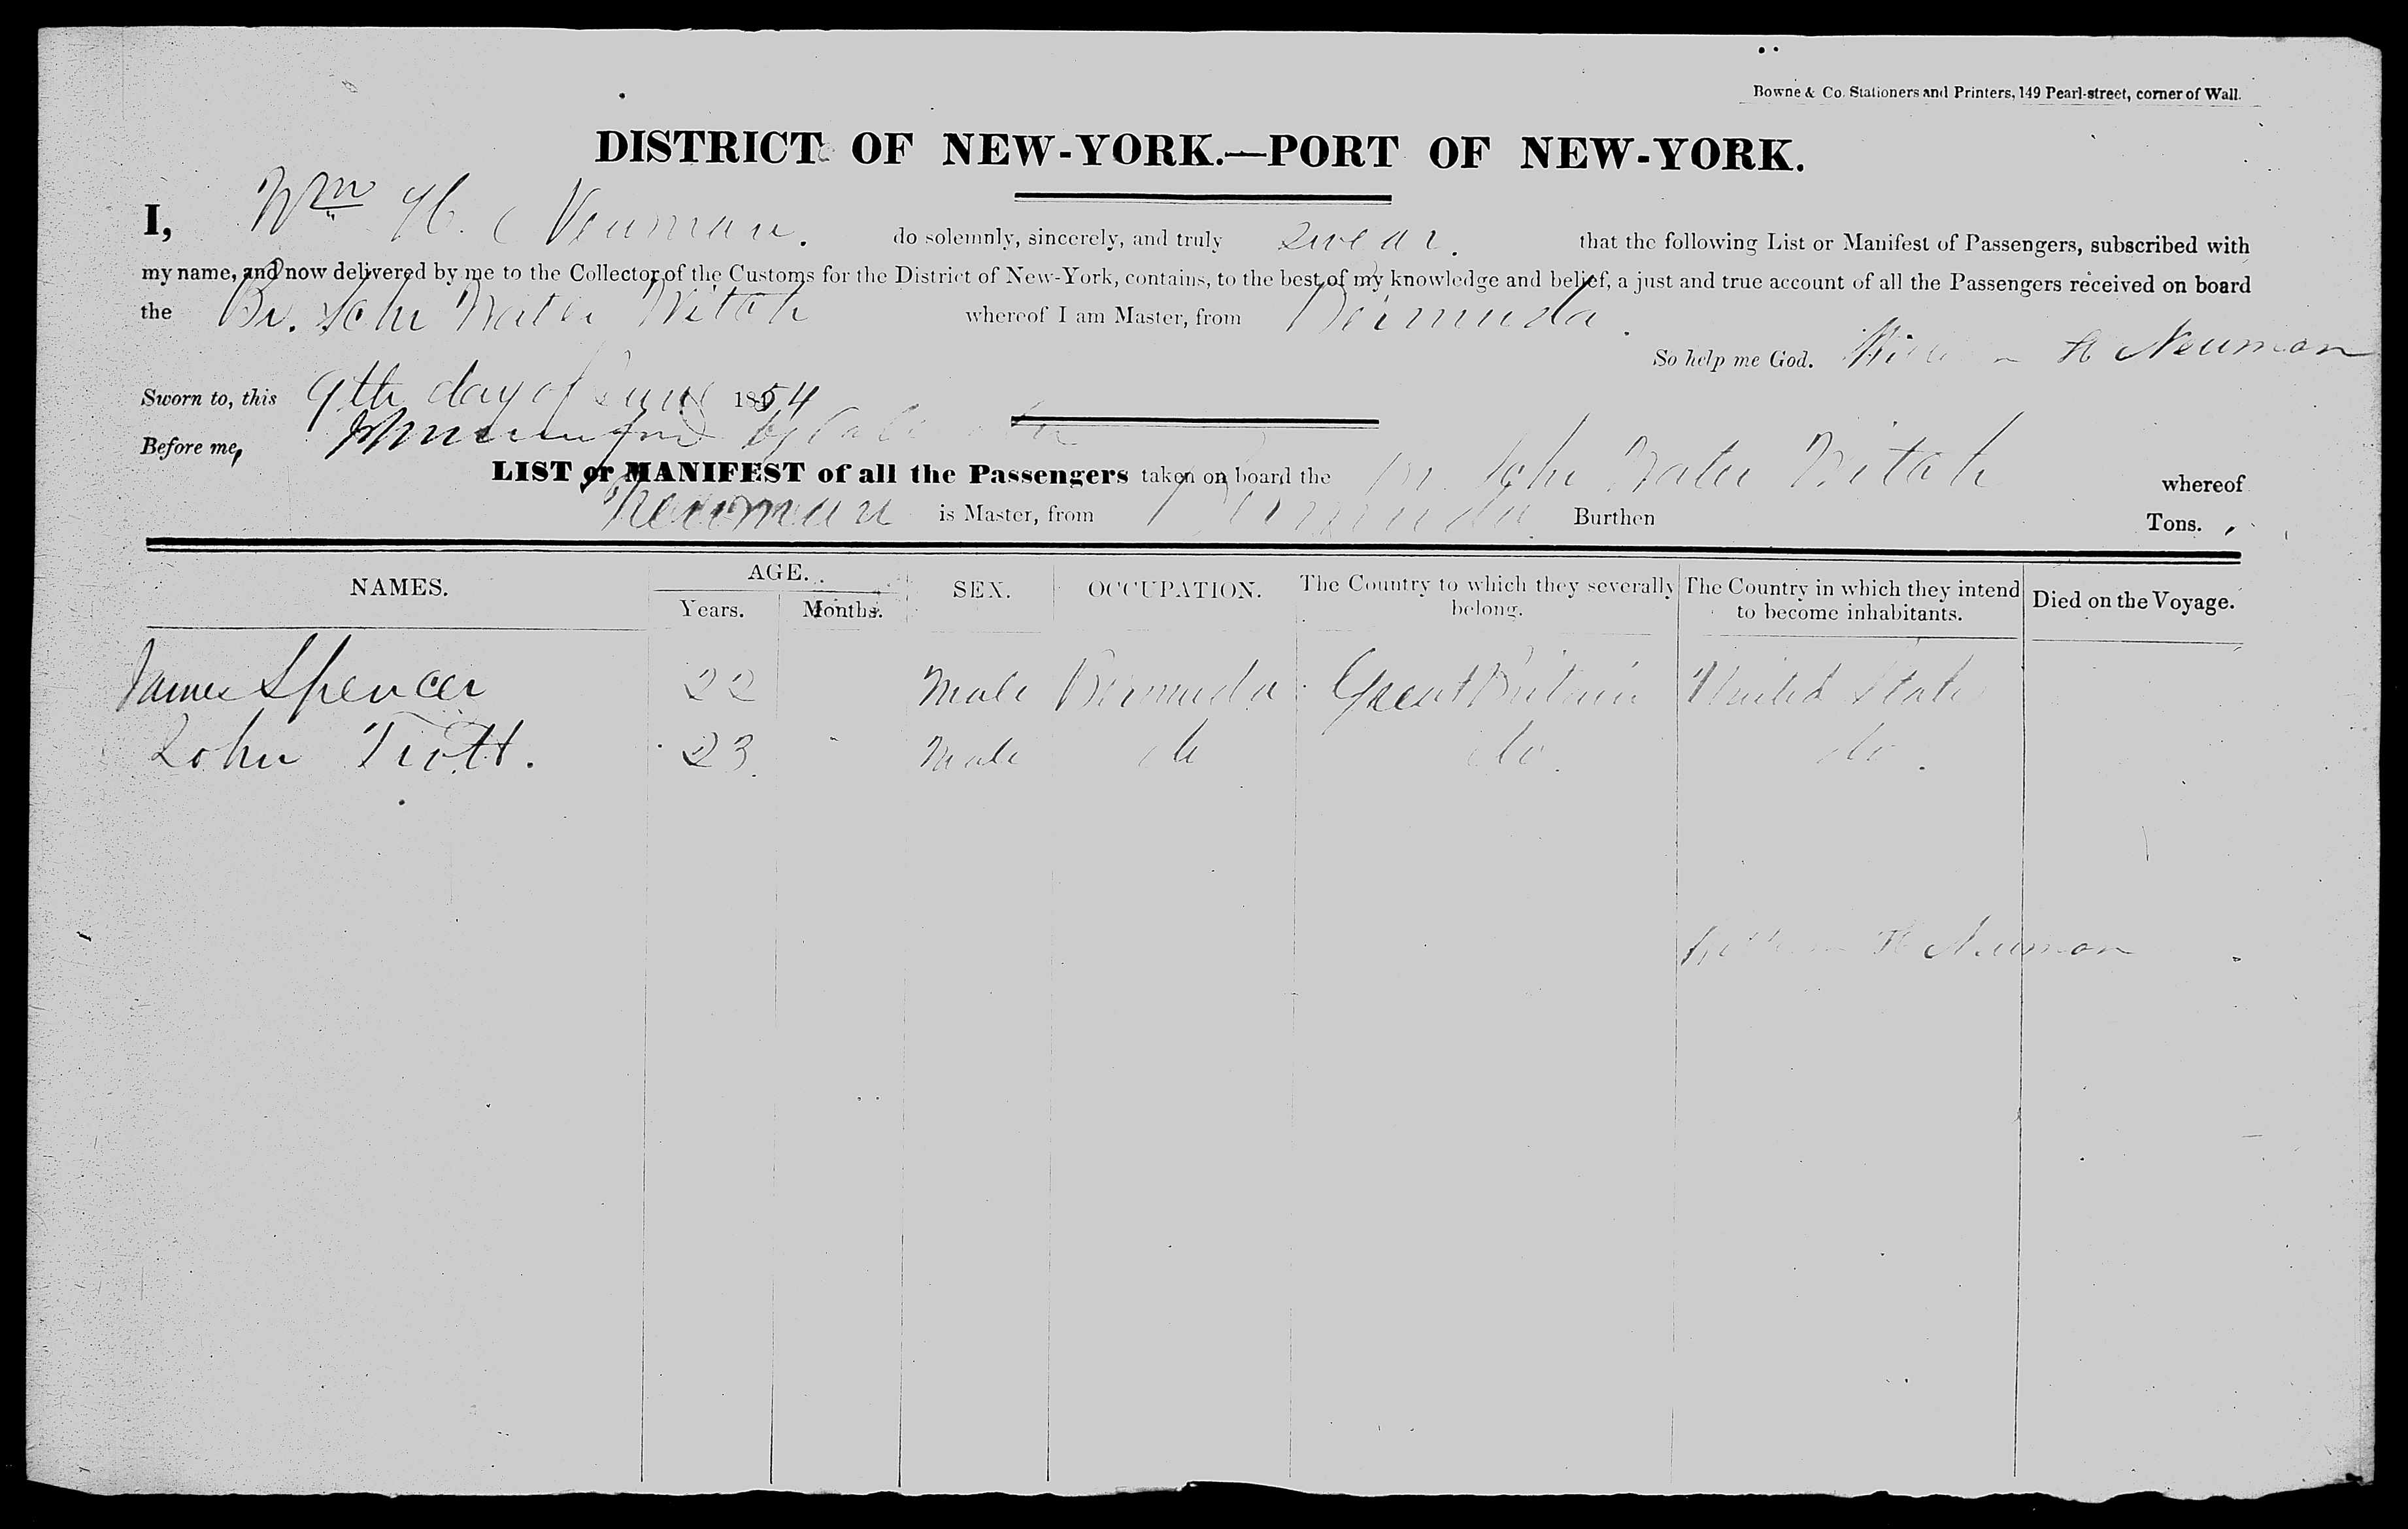 Bowne & Co. Stationers and Printers, 149 Pearl-street, corner of Wall.
DISTRICT OF NEW-YORK.—PORT OF NEW-YORK.
I, Wm H. Neuman. do solemnly, sincerely, and truly swear. that the following List or Manifest of Passengers, subscribed with
my name, and now delivered by me to the Collector of the Customs for the District of New-York, contains, to the best of my knowledge and belief, a just and true account of all the Passengers received on board
the Br. Schr Water Witch whereof I am Master, from Bermuda.
So help me God. H Neuman
Sworn to, this 9th day of June 1854
Before me,
LIST or MANIFEST of all the Passengers taken on board the Br. Schr Water Witch whereof
Newman is Master, from Bermuda Burthen Tons.
NAMES. AGE. SEX. OCCUPATION. The Country to which they severally belong. The Country in which they intend to become inhabitants. Died on the Voyage.
Years. Months.
James Spencer 22 Male Bermuda Great Britain United State
John Trott. 23 Male do do. do.
William H Neuman